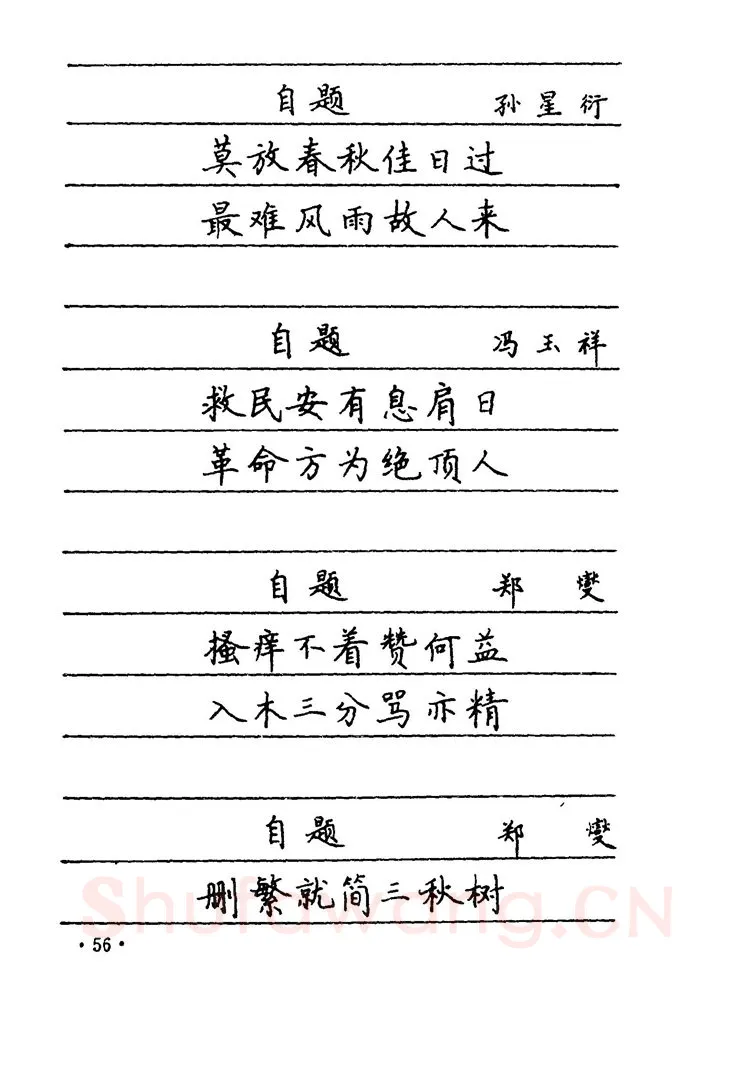 自题 孙星衍
莫放春秋佳日过
最难风雨故人来
自题 冯玉祥
救民安有息肩日
革命方为绝顶人
自题 郑燮
搔痒不着赞何益
入木三分骂亦精
自题 郑燮
删繁就简三秋树
Shufawang.CN
·56·